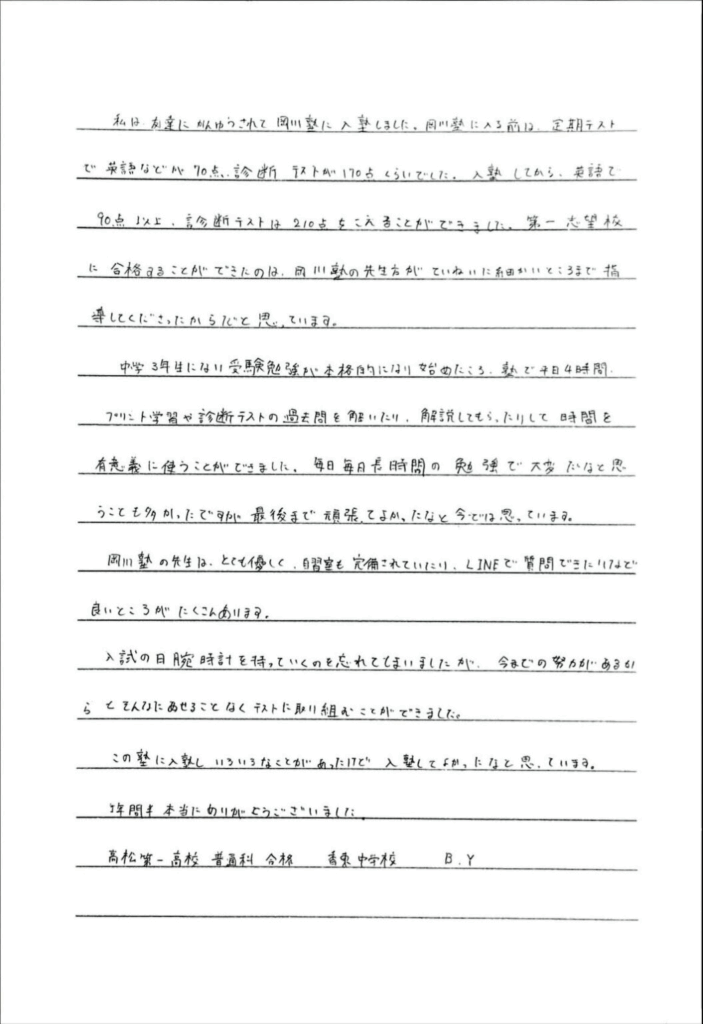 私は友達にかんゆうされて岡川塾に入塾しました。岡川塾に入る前は、定期テスト
で英語などが70点、診断テストが170点くらいでした。入塾してから、英語で
90点以上、診断テストは210点をこえることができました。第一志望校
に合格することができたのは、岡川塾の先生方がていねいに細かいところまで指
導してくださったからだと思っています。
中学3年生になり受験勉強が本格的になり始めたころ、塾で平日4時間、
プリント学習や診断テストの過去問を解いたり、解説してもらったりして時間を
有意義に使うことができました。毎日毎日長時間の勉強で大変だなと思
うことも多かったですが最後まで頑張ってよかったなと今では思っています。
岡川塾の先生は、とても優しく、自習室も完備されていたり、LINEで質問できたりなど
良いところがたくさんあります。
入試の日腕時計を持っていくのを忘れてしまいましたが、今までの努力があるか
らとそんなにあせることなくテストに取り組むことができました。
この塾に入塾しいろいろなことがあったけど入塾してよかったなと思っています。
年間半本当にありがとうございました。
高松第一高校 普通科 合格 香東中学校 B.Y